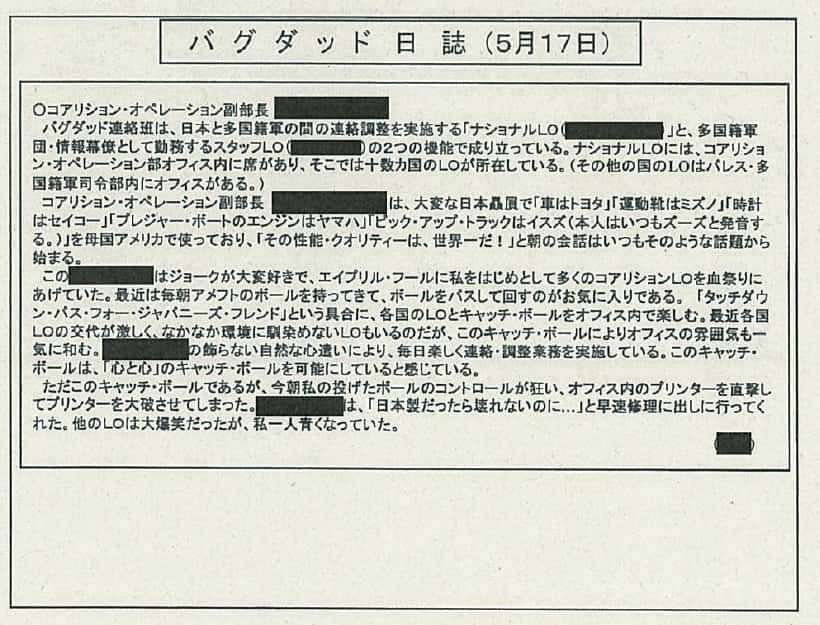 バグダッド日誌（5月17日）
〇コアリション・オペレーション副部長
バグダッド連絡班は、日本と多国籍軍の間の連絡調整を実施する「ナショナルLO( )」と、多国籍軍
団・情報幕僚として勤務するスタッフLO( )の2つの機能で成り立っている。ナショナルLOには、コアリショ
ン・オペレーション部オフィス内に席があり、そこでは十数カ国のLOが所在している。(その他の国のLOはパレス・多
国籍軍司令部内にオフィスがある。)
コアリション・オペレーション副部長 は、大変な日本贔屓で「車はトヨタ」「運動靴はミズノ」「時計
はセイコー」「プレジャー・ボートのエンジンはヤマハ」「ピック・アップ・トラックはイスズ(本人はいつもズーズと発音す
る。)」を母国アメリカで使っており、「その性能・クオリティーは、世界一だ！」と朝の会話はいつもそのような話題から
始まる。
この はジョークが大変好きで、エイプリル・フールに私をはじめとして多くのコアリションLOを血祭りに
あげていた。最近は毎朝アメフトのボールを持ってきて、ボールをパスして回すのがお気に入りである。「タッチダウ
ン・パス・フォー・ジャパニーズ・フレンド」という具合に、各国のLOとキャッチ・ボールをオフィス内で楽しむ。最近各国
LOの交代が激しく、なかなか環境に馴染めないLOもいるのだが、このキャッチ・ボールによりオフィスの雰囲気も一
気に和む。 の飾らない自然な心遣いにより、毎日楽しく連絡・調整業務を実施している。このキャッチ・
ボールは、「心と心」のキャッチ・ボールを可能にしていると感じている。
ただこのキャッチ・ボールであるが、今朝私の投げたボールのコントロールが狂い、オフィス内のプリンターを直撃し
てプリンターを大破させてしまった。 は、「日本製だったら壊れないのに…」と早速修理に出しに行ってく
れた。他のLOは大爆笑だったが、私一人青くなっていた。
( )